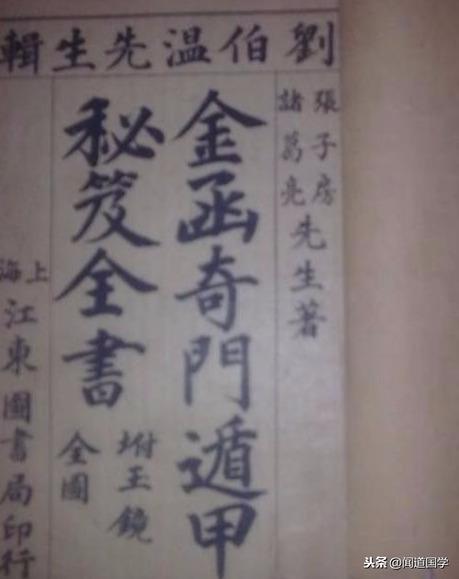 劉伯温先生輯
張子房
諸葛亮
先生著
金函奇門遁甲
秘笈全書
坿玉鏡
全圖
上海
江東圖書局印行
头条 @闻道国学